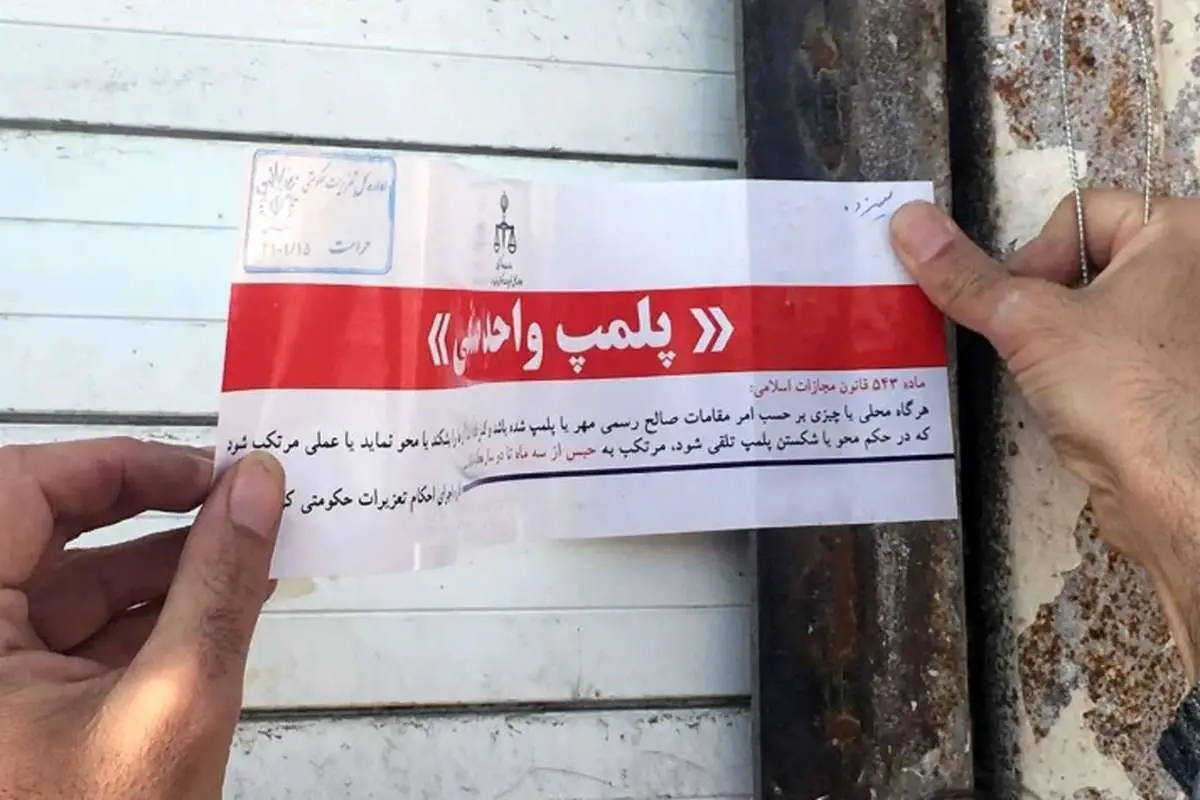 اداره کل تعزیرات حکومتی
حراست
« پلمپ واحد صنفی »
ماده ۵۴۳ قانون مجازات اسلامی:
هرگاه محلی یا چیزی بر حسب امر مقامات صالح رسمی مهر یا پلمپ شده باشد و کسی بشکند یا محو نماید یا عملی مرتکب شود
که در حکم محو یا شکستن پلمپ تلقی شود، مرتکب به حبس از سه ماه تا دو سال
اجرای احکام تعزیرات حکومتی